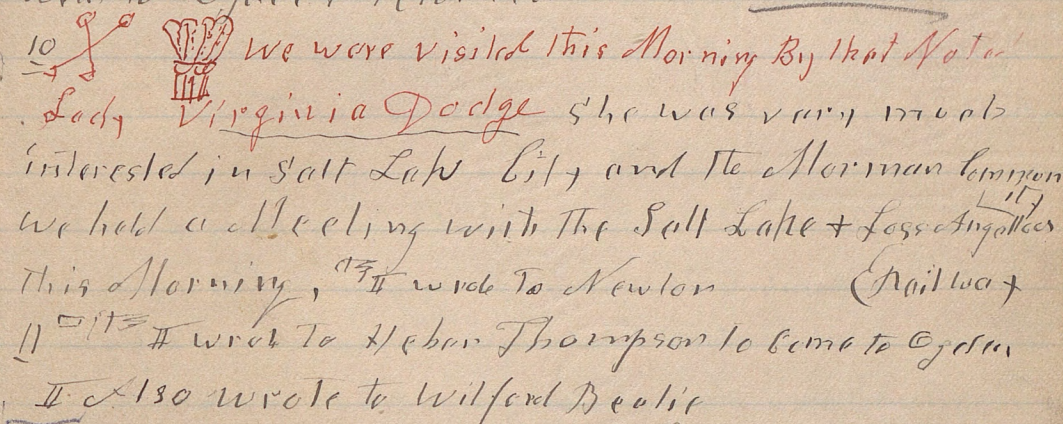 10 We were visited this Morning By that Noted
Lady Virginia Dodge She was vary much
interested in Salt Lake City and the Morman Commun
ity
we held a Meeting with the Salt Lake + Loss Angelloes
this Morning, I wrote to Newton (Railway
11 I wrote To Heber Thompson to Come to Ogden
I Also wrote to Wilford Beatie